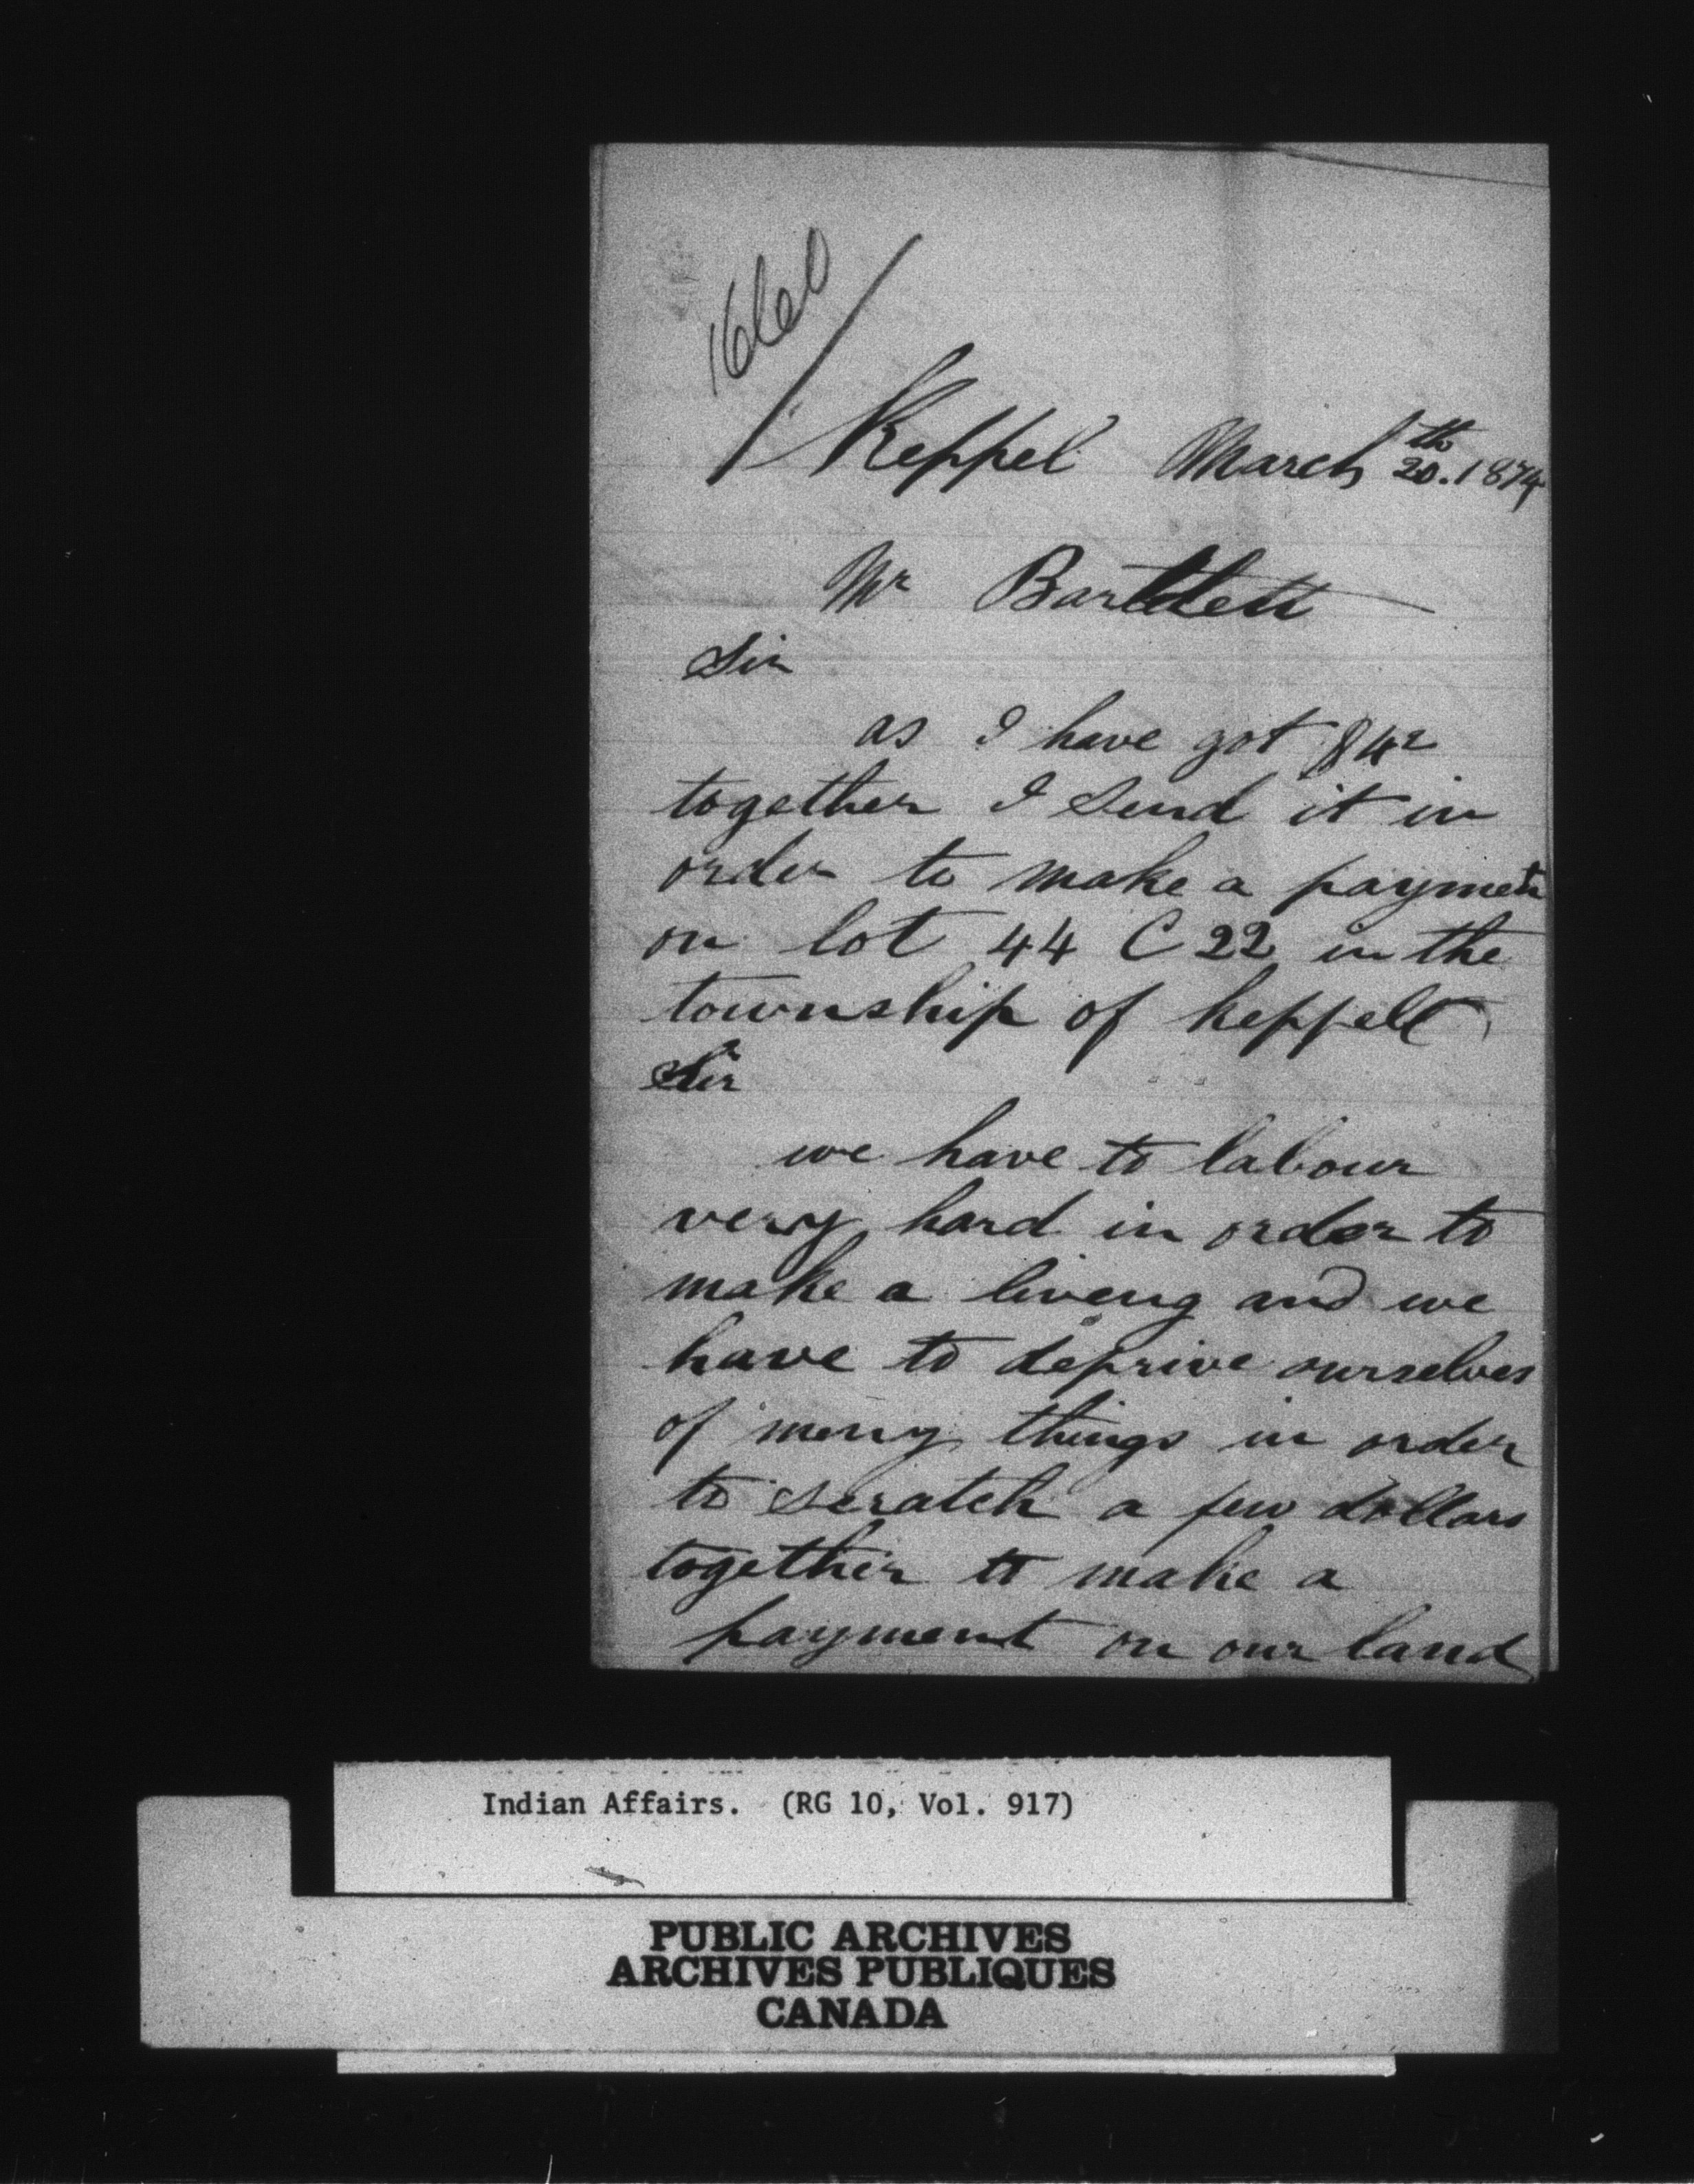 1660
Keppel March 20th. 1874
Mr Bartlett
Sir
as I have got $42
together I send it in
order to make a payment
on lot 44 C 22 in the
township of keppell
Sir
we have to labour
very hard in order to
make a liveng and we
have to deprive ourselves
of meny things in order
to scratch a few dollars
together to make a
payment on our land
Indian Affairs. (RG 10, Vol. 917)
PUBLIC ARCHIVES
ARCHIVES PUBLIQUES
CANADA